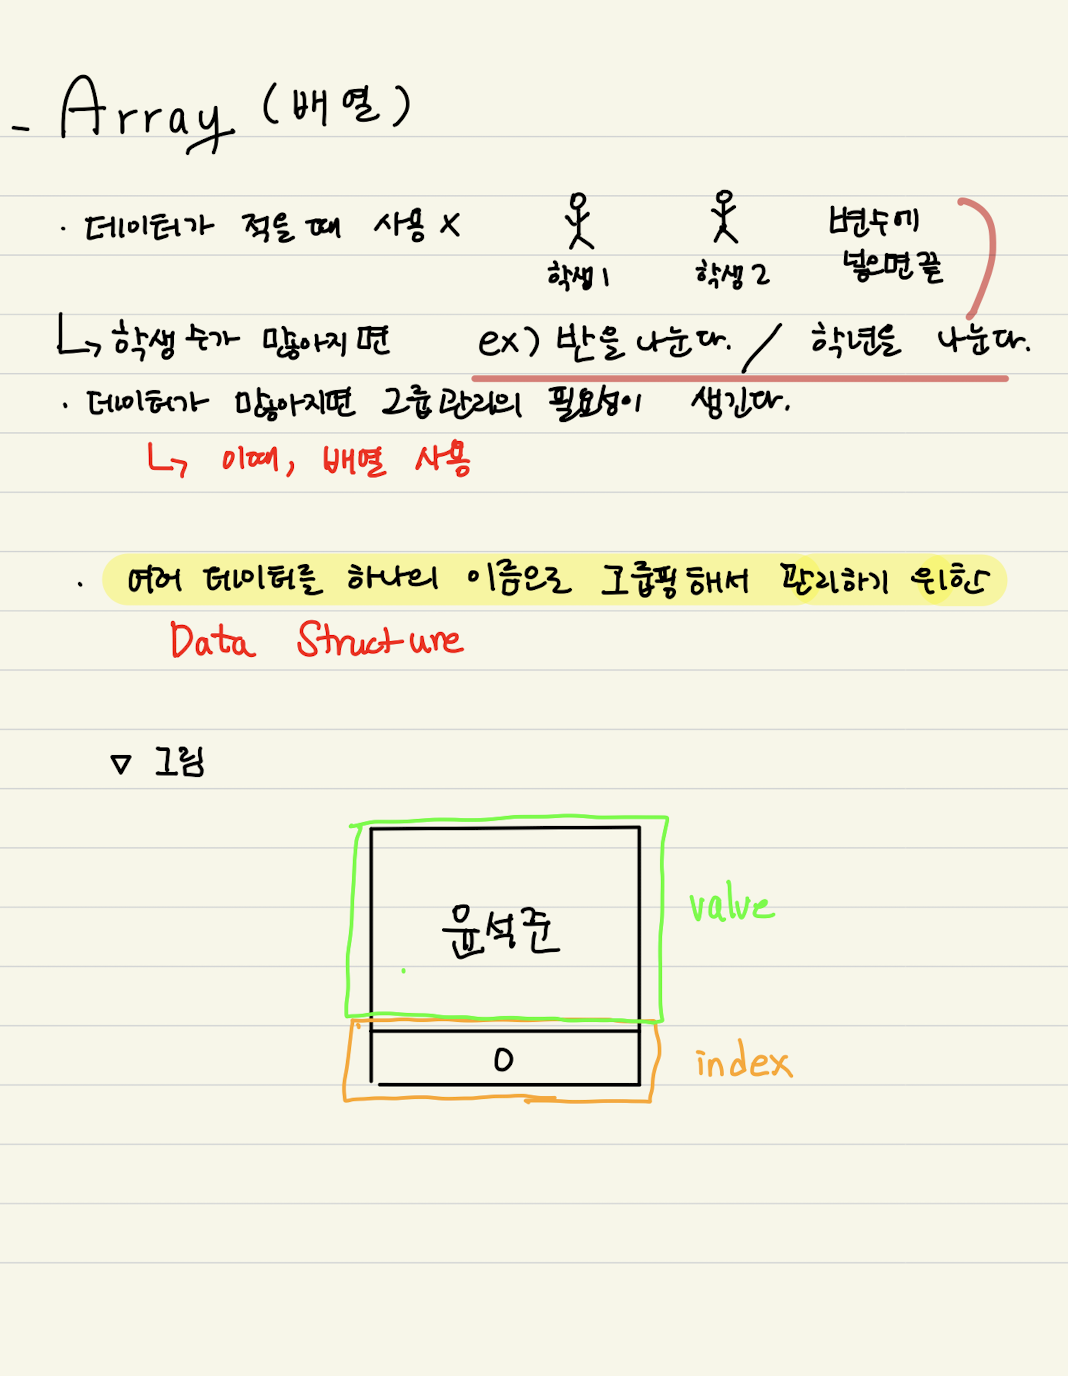 - Array (배열)
· 데이터가 적을 때 사용 X
학생1
학생2
변수에
넣으면 끝
↳ 학생 수가 많아지면 ex) 반을 나눈다. / 학년을 나눈다.
· 데이터가 많아지면 그룹관리의 필요성이 생긴다.
↳ 이때, 배열 사용
· 여러 데이터를 하나의 이름으로 그룹핑해서 관리하기 위한
Data Structure
▽ 그림
윤석준
value
0
index